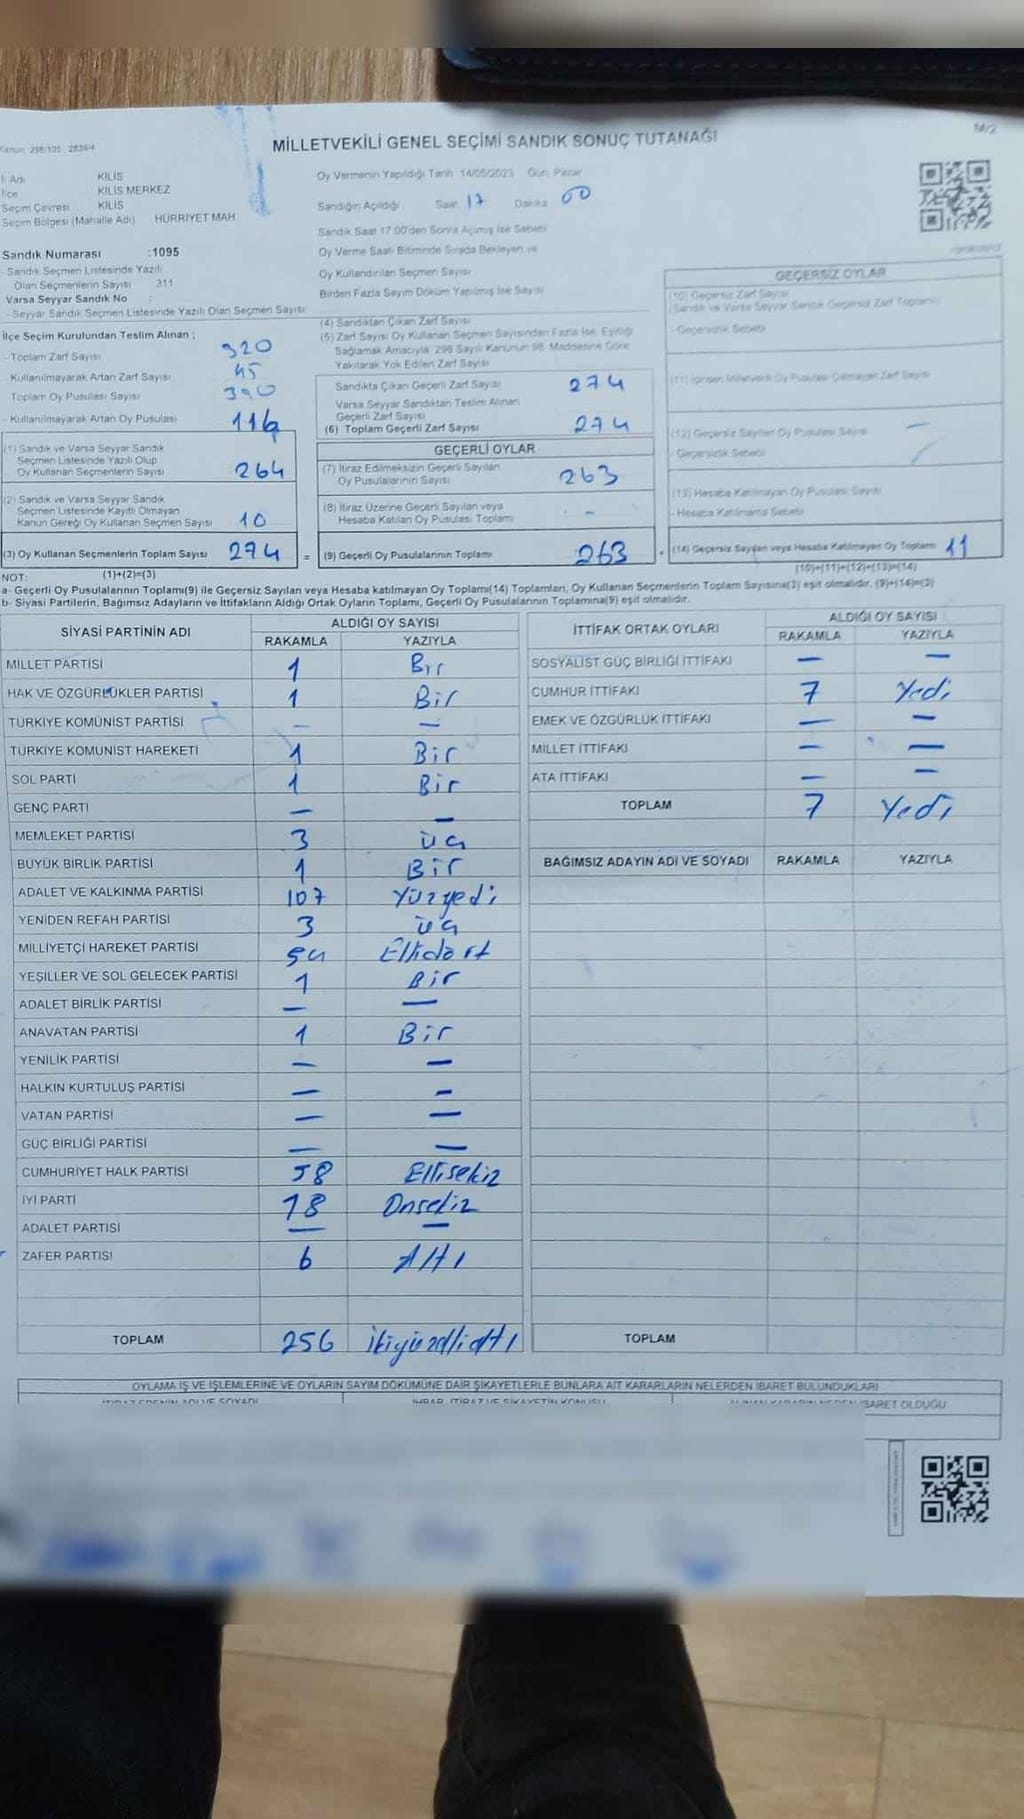 MİLLETVEKİLİ GENEL SEÇİMİ SANDIK SONUÇ TUTANAĞI
İl Adı KİLİS
İlçe KİLİS MERKEZ
Seçim Çevresi KİLİS
Seçim Bölgesi (Mahalle Adı) HÜRRİYET MAH
Sandık Numarası :1095
- Sandık Seçmen Listesinde Yazılı
Olan Seçmenlerin Sayısı 311
Varsa Seyyar Sandık No :
- Seyyar Sandık Seçmen Listesinde Yazılı Olan Seçmen Sayısı
Oy Vermenin Yapıldığı Tarih 14/05/2023 Gün Pazar
Sandığın Açıldığı Saat 17 Dakika 00
Sandık Saat 17:00'den Sonra Açılmış İse Sebebi
Oy Verme Saati Bitiminde Sırada Bekleyen ve
Oy Kullandırılan Seçmen Sayısı
Birden Fazla Sayım Döküm Yapılmış İse Sayısı
İlçe Seçim Kurulundan Teslim Alınan ;
- Toplam Zarf Sayısı 320
- Kullanılmayarak Artan Zarf Sayısı 45
Toplam Oy Pusulası Sayısı 390
- Kullanılmayarak Artan Oy Pusulası 116
(1) Sandık ve Varsa Seyyar Sandık
Seçmen Listesinde Yazılı Olup
Oy Kullanan Seçmenlerin Sayısı 264
(2) Sandık ve Varsa Seyyar Sandık
Seçmen Listesinde Kayıtlı Olmayan
Kanun Gereği Oy Kullanan Seçmen Sayısı 10
(3) Oy Kullanan Seçmenlerin Toplam Sayısı 274 =
(1)+(2)=(3)
(4) Sandıktan Çıkan Zarf Sayısı
(5) Zarf Sayısı Oy Kullanan Seçmen Sayısından Fazla İse, Eşitliği
Sağlamak Amacıyla, 298 Sayılı Kanunun 98. Maddesine Göre
Yakılarak Yok Edilen Zarf Sayısı
Sandıkta Çıkan Geçerli Zarf Sayısı 274
Varsa Seyyar Sandıktan Teslim Alınan
Geçerli Zarf Sayısı
(6) Toplam Geçerli Zarf Sayısı 274
GEÇERLİ OYLAR
(7) İtiraz Edilmeksizin Geçerli Sayılan
Oy Pusulalarının Sayısı 263
(8) İtiraz Üzerine Geçerli Sayılan veya
Hesaba Katılan Oy Pusulası Toplamı -
(9) Geçerli Oy Pusulalarının Toplamı 263
GEÇERSİZ OYLAR
(10) Geçersiz Zarf Sayısı
(Sandık ve Varsa Seyyar Sandık Geçersiz Zarf Toplamı)
- Geçersizlik Sebebi
(12) Geçersiz Sayılan Oy Pusulası Sayısı
- Geçersizlik Sebebi
(13) Hesaba Katılmayan Oy Pusulası Sayısı
- Hesaba Katılmama Sebebi
(14) Geçersiz Sayılan veya Hesaba Katılmayan Oy Toplamı 11
(10)+(11)+(12)+(13)=(14)
NOT:
a- Geçerli Oy Pusulalarının Toplamı(9) ile Geçersiz Sayılan veya Hesaba katılmayan Oy Toplamı(14) Toplamları, Oy Kullanan Seçmenlerin Toplam Sayısına(3) eşit olmalıdır. (9)+(14)=(3)
b- Siyasi Partilerin, Bağımsız Adayların ve İttifakların Aldığı Ortak Oyların Toplamı, Geçerli Oy Pusulalarının Toplamına(9) eşit olmalıdır.
SİYASİ PARTİNİN ADI ALDIĞI OY SAYISI
RAKAMLA YAZIYLA
MİLLET PARTİSİ 1 Bir
HAK VE ÖZGÜRLÜKLER PARTİSİ 1 Bir
TÜRKİYE KOMÜNİST PARTİSİ — —
TÜRKİYE KOMÜNİST HAREKETİ 1 Bir
SOL PARTİ 1 Bir
GENÇ PARTİ — —
MEMLEKET PARTİSİ 3 üç
BÜYÜK BİRLİK PARTİSİ 1 Bir
ADALET VE KALKINMA PARTİSİ 107 Yüzyedi
YENİDEN REFAH PARTİSİ 3 üç
MİLLİYETÇİ HAREKET PARTİSİ 54 Ellidört
YEŞİLLER VE SOL GELECEK PARTİSİ 1 Bir
ADALET BİRLİK PARTİSİ — —
ANAVATAN PARTİSİ 1 Bir
YENİLİK PARTİSİ — —
HALKIN KURTULUŞ PARTİSİ — —
VATAN PARTİSİ — —
GÜÇ BİRLİĞİ PARTİSİ — —
CUMHURİYET HALK PARTİSİ 58 Ellisekiz
İYİ PARTİ 18 Onsekiz
ADALET PARTİSİ — —
ZAFER PARTİSİ 6 Altı
TOPLAM 256 ikiyüzellialtı
İTTİFAK ORTAK OYLARI ALDIĞI OY SAYISI
RAKAMLA YAZIYLA
SOSYALİST GÜÇ BİRLİĞİ İTTİFAKI — —
CUMHUR İTTİFAKI 7 Yedi
EMEK VE ÖZGÜRLÜK İTTİFAKI — —
MİLLET İTTİFAKI — —
ATA İTTİFAKI — —
TOPLAM 7 Yedi
BAĞIMSIZ ADAYIN ADI VE SOYADI RAKAMLA YAZIYLA
TOPLAM
OYLAMA İŞ VE İŞLEMLERİNE VE OYLARIN SAYIM DÖKÜMÜNE DAİR ŞİKAYETLERLE BUNLARA AİT KARARLARIN NELERDEN İBARET BULUNDUKLARI